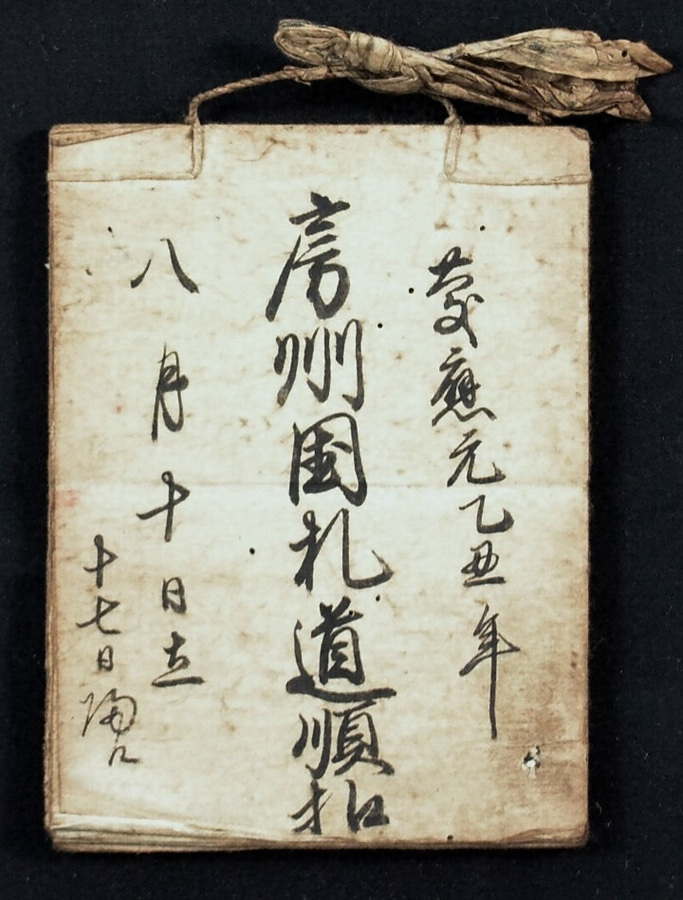 慶應元乙丑年
房州国札道順扣
八月十日立
十七日帰ル